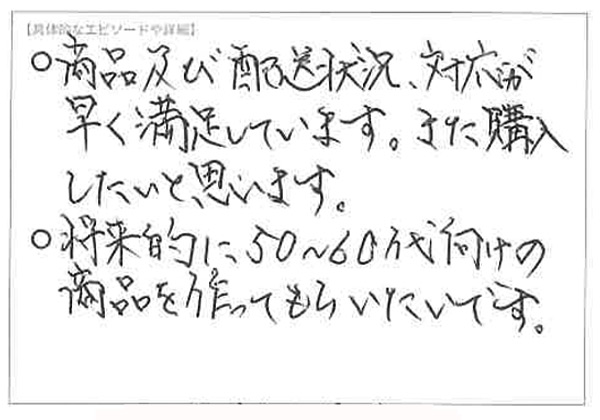 【具体的なエピソードや詳細】
○商品及び配送状況、対応が
早く満足しています。また購入
したいと思います。
○将来的に50~60代向けの
商品を作ってもらいたいです。